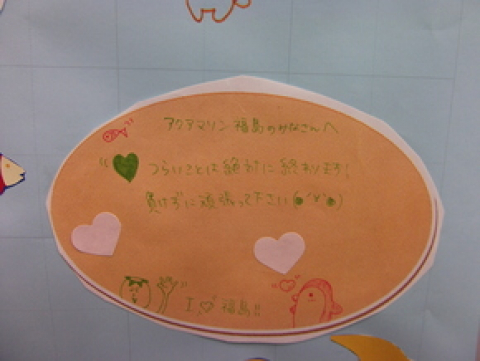 アクアマリン福島のみなさんへ
つらいことは絶対に終わります!
負けずに頑張って下さい(●´∀`●)
I♡福島!!